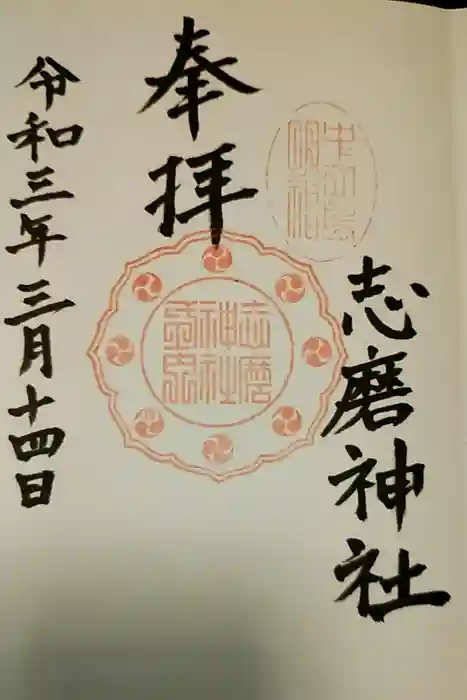 志磨神社
奉拝
志磨
神社
令和三年三月十四日